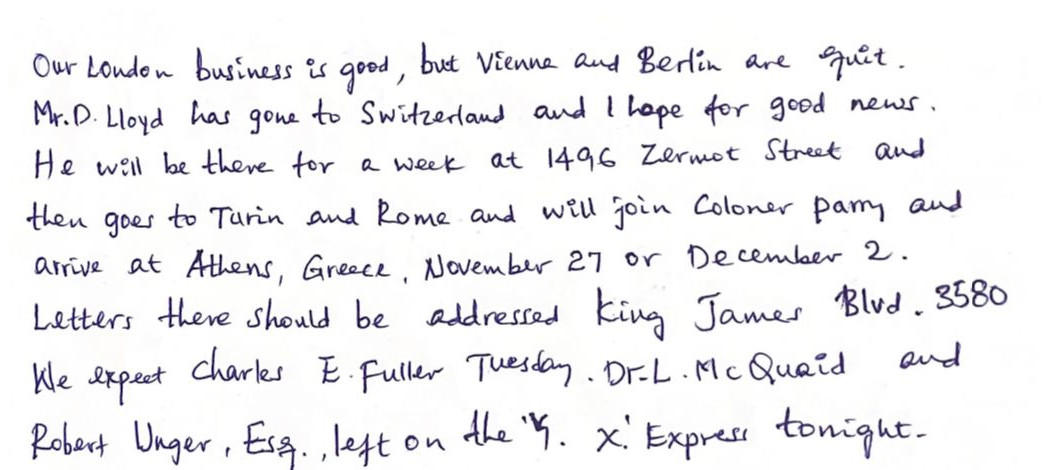 Our London business is good, but Vienna and Berlin are quit.
Mr. D. Lloyd has gone to Switzerland and I hope for good news.
He will be there for a week at 1496 Zermot Street and
then goes to Turin and Rome and will join Coloner Parry and
arrive at Athens, Greece, November 27 or December 2.
Letters there should be addressed King James Blvd. 3580
We expect Charles E. Fuller Tuesday. Dr. L. McQuaid and
Robert Unger, Esq., left on the "Y. X." Express tonight.